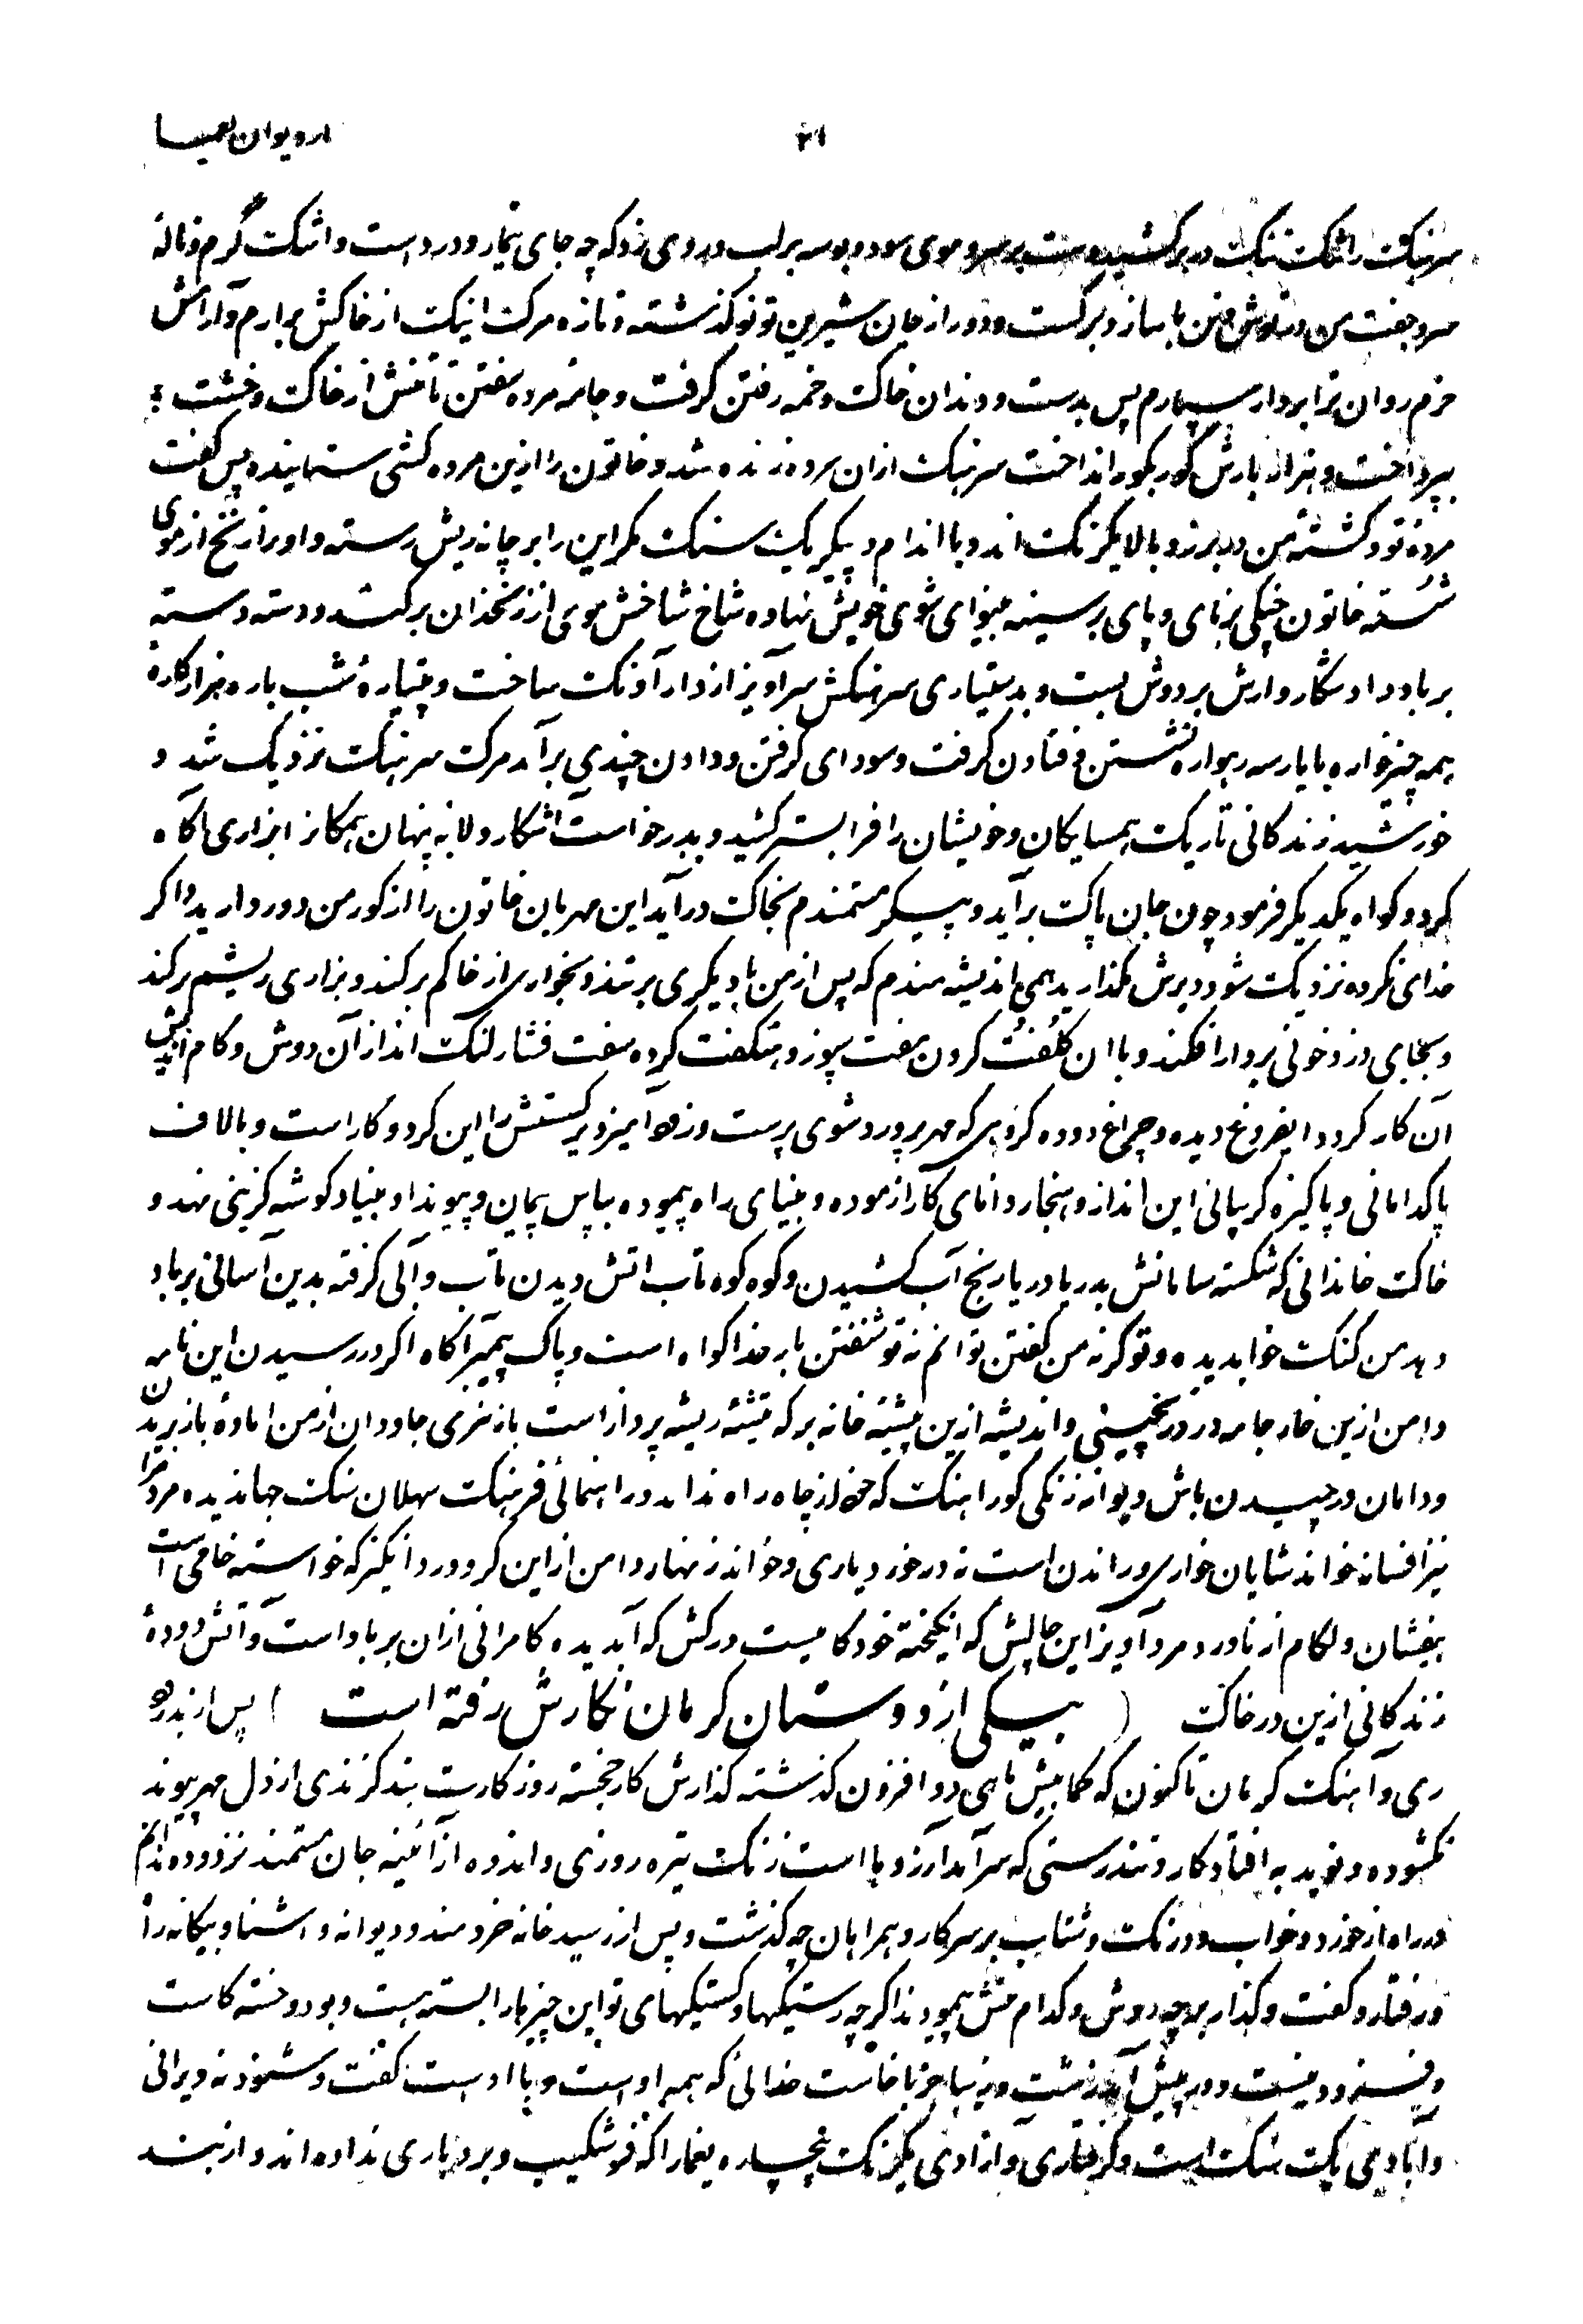 از دیوان یغمیسا
۳۱
سرهنگ را تنگ تنگ در بر کشید و دست بر سر و موی سود و بوسه بر لب و روی زد که چه جای تیمار و درد است و اشک گرم و نالهٔ
سرد جفت من و با ساز و برگست و دور از جان شیرین تو نو گذشته و تازه مرگ اینک از خاکش برآرم و آرامش
خرم روان ترا بردار سپارم پس بدست و دندان خاک دخمه رفتن گرفت و جامه مرده سفتن تا تنش از خاک و خشت
بپرداخت و هزار بارش گور بگور انداخت سرهنگ ازان مرده زنده شد و خاتون را ازین مرده کشی ستاینده پس گفت
مردهٔ تو و کشتهٔ من در برز و بالا یکرنگ اند و با اندام و پیکر یک سنگ مگر این را بر چانه ریش رسته و او را زنخ از موی
شسته خاتون چنگی بر نای و پای بر سینه بینوای شوی خویش نهاده شاخ شاخش موی از زنخدان برکند و دسته دسته
بر باد داد شکاروارش بر دوش بست و بدستیاری سرهنگش سرآویز از دار آونگ ساخت و پتیاره شب باره هزار کارهٔ
همه چیز خواره با یار سه رهواره نشستن و فتادن گرفت و سودای گرفتن و دادن چندی برآمد مرگ سرهنگ نزدیک شد و
خورشید زندگانی تاریک همسایگان و خویشان را فرا بستر کشید و بدرخواست آشکار و لابه پنهان همگانرا ز ابزاری آگاه
کرد و گواه یکدیگر فرمود چون جان پاک برآید و پیکر مستمندم بخاک درآید این مهربان خاتون را از گور من دور دارید و اگر
خدای نکرده نزدیک شود دیرش مگذارید همی اندیشه مندم که پس از من با دیگری برتند و بخواری از خاکم برکند و بزاری ریشم برکند
و بجای دزد خونی بر دار افکند و با آن کلفت گردن هفت سپوز و شگفت گرده سفت فشار لنگ انداز آن دوش و کام اندیش
آن کار گردد ایفروغ دیده و چراغ دوده گروهی که مهر پرورد شوی پرست و رزه آمیز و پرستش را این کرد و کار است و بالاف
پاکدامانی و پاکیزه گریبانی این انداز و هنجار دانای کار آزموده و بینای راه پیموده بپاس پیمان و پیوند او بنیاد گوشه گزینی نهد و
خاک خاندانی که شکسته سامانش بدریا دریا رنج آب کشیدن و کوه کوه تاب آتش دیدن تاب و آلی گرفته بدین آسانی بر باد
دهد من گنگ خوابدیده و تو کر نه من گفتن توانم نه تو شنفتن بار خدا گواه است و پاک پیمبر آگاه اگر در رسیدن این نامه
دامن ازین خار جامه در در نچینی و اندیشه ازین پیشهٔ خانه بر که تیشهٔ ریشه پرداز است باز نخری جاودان از من آمادهٔ باز بریدن
و دامان در چیدن باش دیوانه زنگی کور آهنگ که خود از چاه راه نداند و راهنمائی فرهنگ سهلان سنگ جهاندیده مرد را
نیز افسانه خواند شایان خواری و راندن است نه در خورد یاری و خواند زنهار دامن از این گرد درد انگیز که خواسته خامی است
بیفشان و لگام از ناورد مرد آویز این چالش که انگیخته خود کامیست درکش که آبدیده کامرانی ازان بر باد است و آتش دودهٔ
زندگانی ازین در خاک ( بیکی از دوستان کرمان نگارش رفته است ) پس از بدرود
ری و آهنگ کرمان تاکنون که کمابیش ماهی دو افزون گذشته گذارش کار خجسته روزگارت بند گزندی از دل مهر پیوند
نگشوده و نوید به افتاد کار و تندرستی که سرآمد آرزوها است زنگ تیره روزی و اندوه از آئینه جان مستمند نزدوده ندانم
در راه از خورد و خواب و درنگ و شتاب بر سرکار و همراهان چه گذشت و پس از رسید خانه خردمند و دیوانه و آشنا و بیگانه را
در رفتار و گفت و گذار بر چه روش و کدام منش پیمودند اگر چه رستیکها و گستیکهای تو این چیزها را بسته هست و بود و خسته کاست
و فزود نیست و در پیش آمد زشت و زیبا جز با خاست خدائی که همه اوست و با اوست گفت و شنود نه ویرانی
و آبادی یک سنگ است و گرفتاری و آزادی یکرنگ بیچاره یغما را که فر شکیب و بردباری نداده اند و از بند